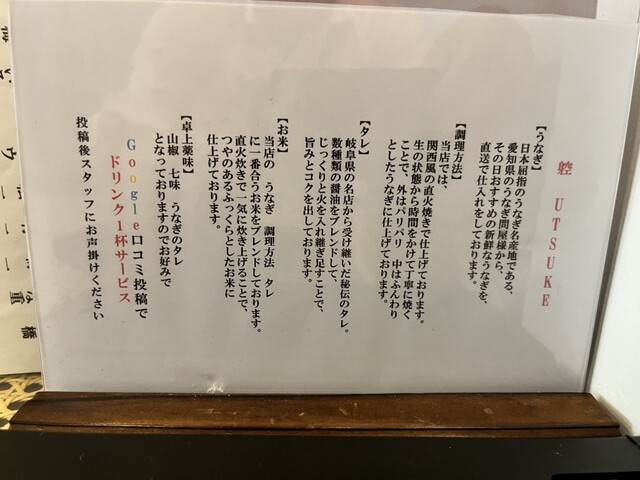 躻 UTSUKE
【うなぎ】
日本屈指のうなぎ名産地である、
愛知県のうなぎ問屋様から、
その日おすすめの新鮮なうなぎを、
直送で仕入れをしております。
【調理方法】
当店では、
関西風の直火焼きで仕上げております。
生の状態から時間をかけて丁寧に焼く
ことで、外はパリパリ 中はふんわり
としたうなぎに仕上げております。
【タレ】
岐阜県の名店から受け継いだ秘伝のタレ。
数種類の醤油をブレンドして、
じっくりと火を入れ継ぎ足すことで、
旨みとコクを出しております。
【お米】
当店の うなぎ 調理方法 タレ
に一番合うお米をブレンドしております。
直火炊きで一気に炊き上げることで、
つやのあるふっくらとしたお米に
仕上げております。
【卓上薬味】
山椒 七味 うなぎのタレ
となっておりますのでお好みで
Google口コミ投稿で
ドリンク1杯サービス
投稿後スタッフにお声掛けください